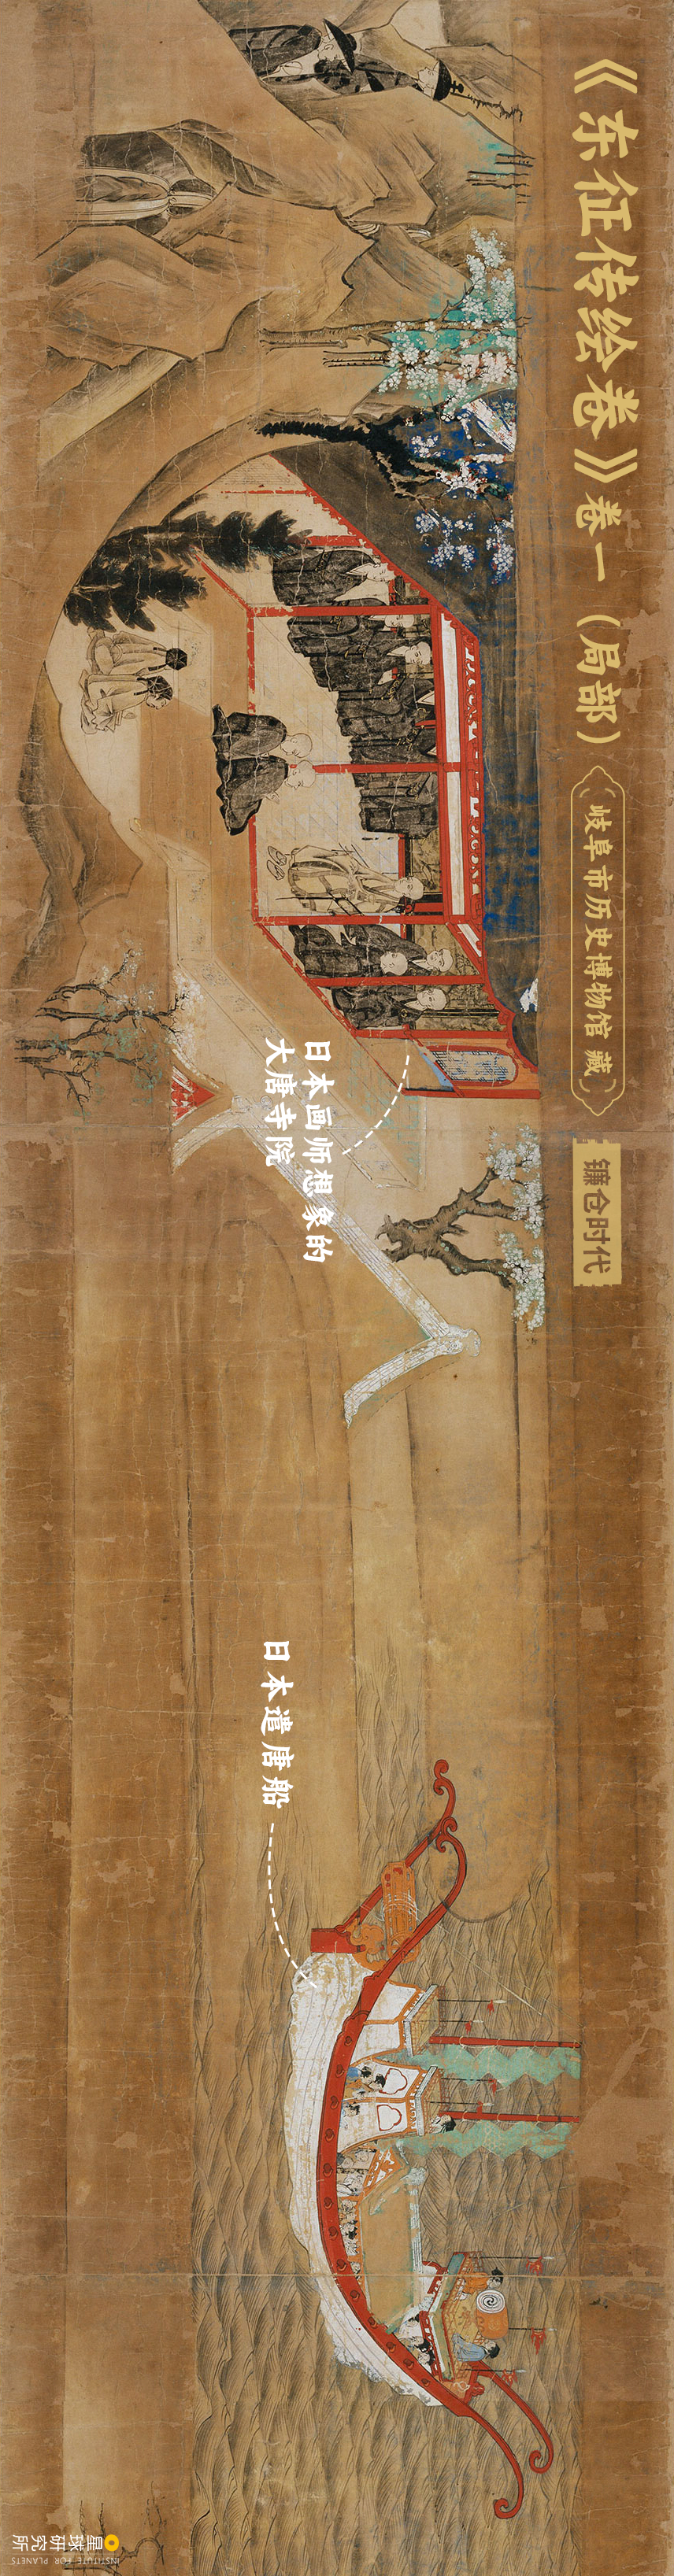 《东征传绘卷》卷一（局部）
岐阜市历史博物馆 藏
镰仓时代
日本画师想象的
大唐寺院
日本遣唐船
星球研究所
INSTITUTE FOR PLANETS